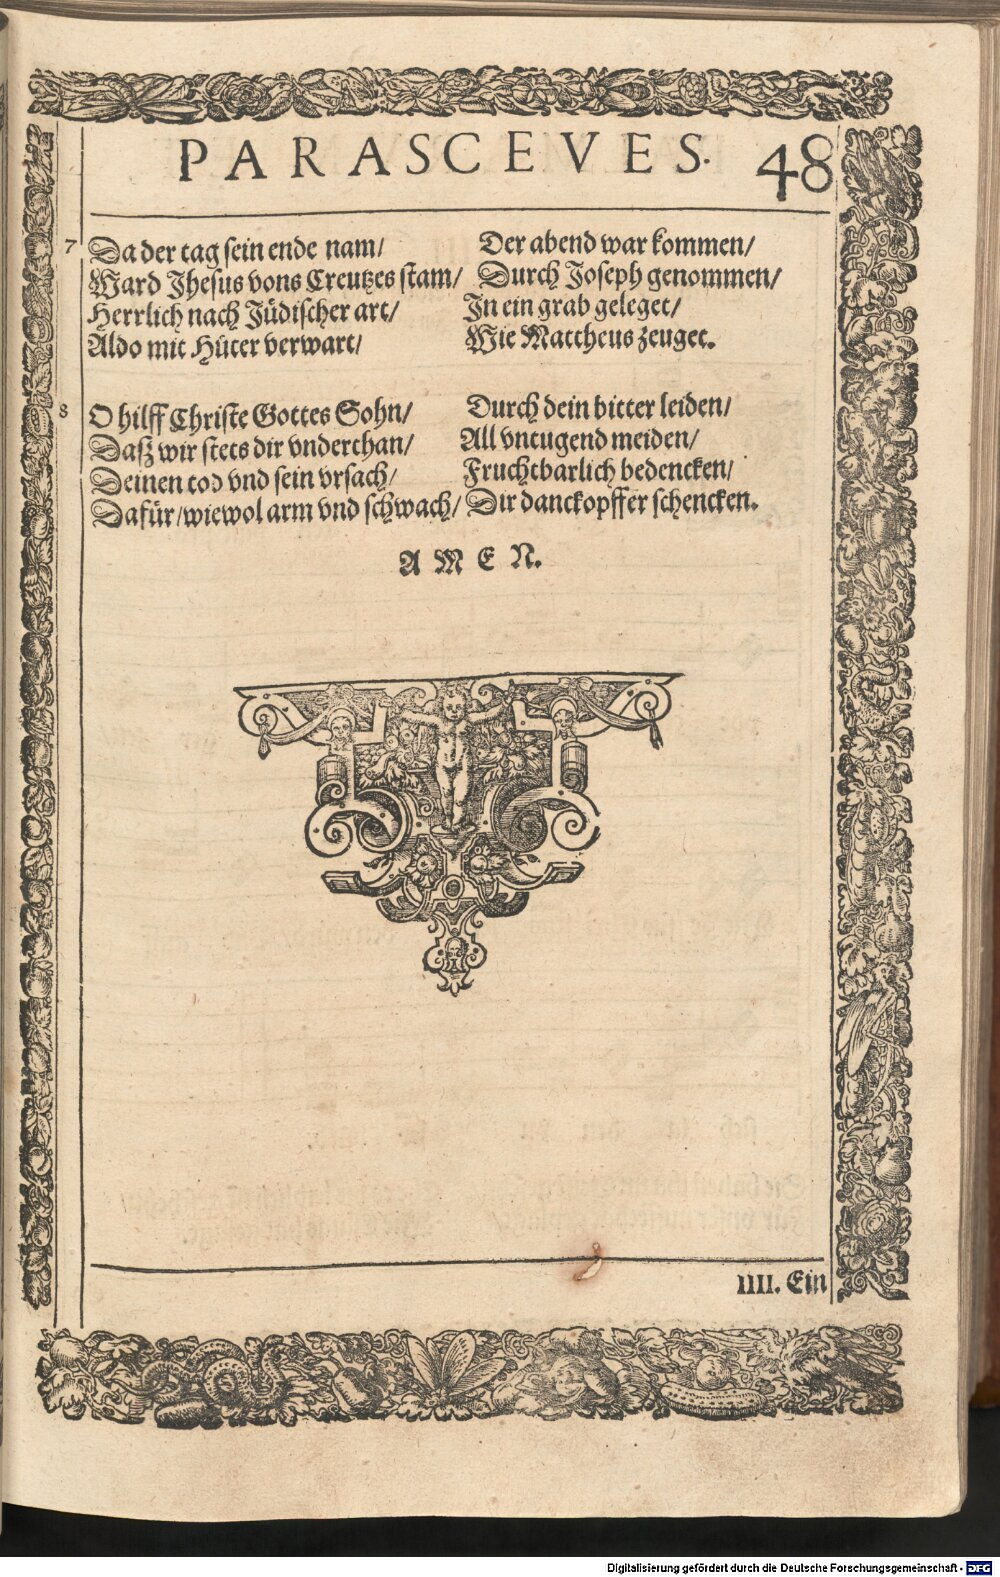 PARASCEVES. 48
7 Da der tag sein ende nam/ Der abend war kommen/
Ward Jhesus vons Creutzes stam/ Durch Joseph genommen/
Herrlich nach Jüdischer art/ In ein grab geleget/
Aldo mit Hüter verwart/ Wie Mattheus zeuget.
8 O hilff Christe Gottes Sohn/ Durch dein bitter leiden/
Dasz wir stets dir vnderthan/ All vntugend meiden/
Deinen tod vnd sein vrsach/ Fruchtbarlich bedencken/
Dafür/wiewol arm vnd schwach/ Dir danckopffer schencken.
AMEN.
IIII. Ein
Digitalisierung gefördert durch die Deutsche Forschungsgemeinschaft - DFG